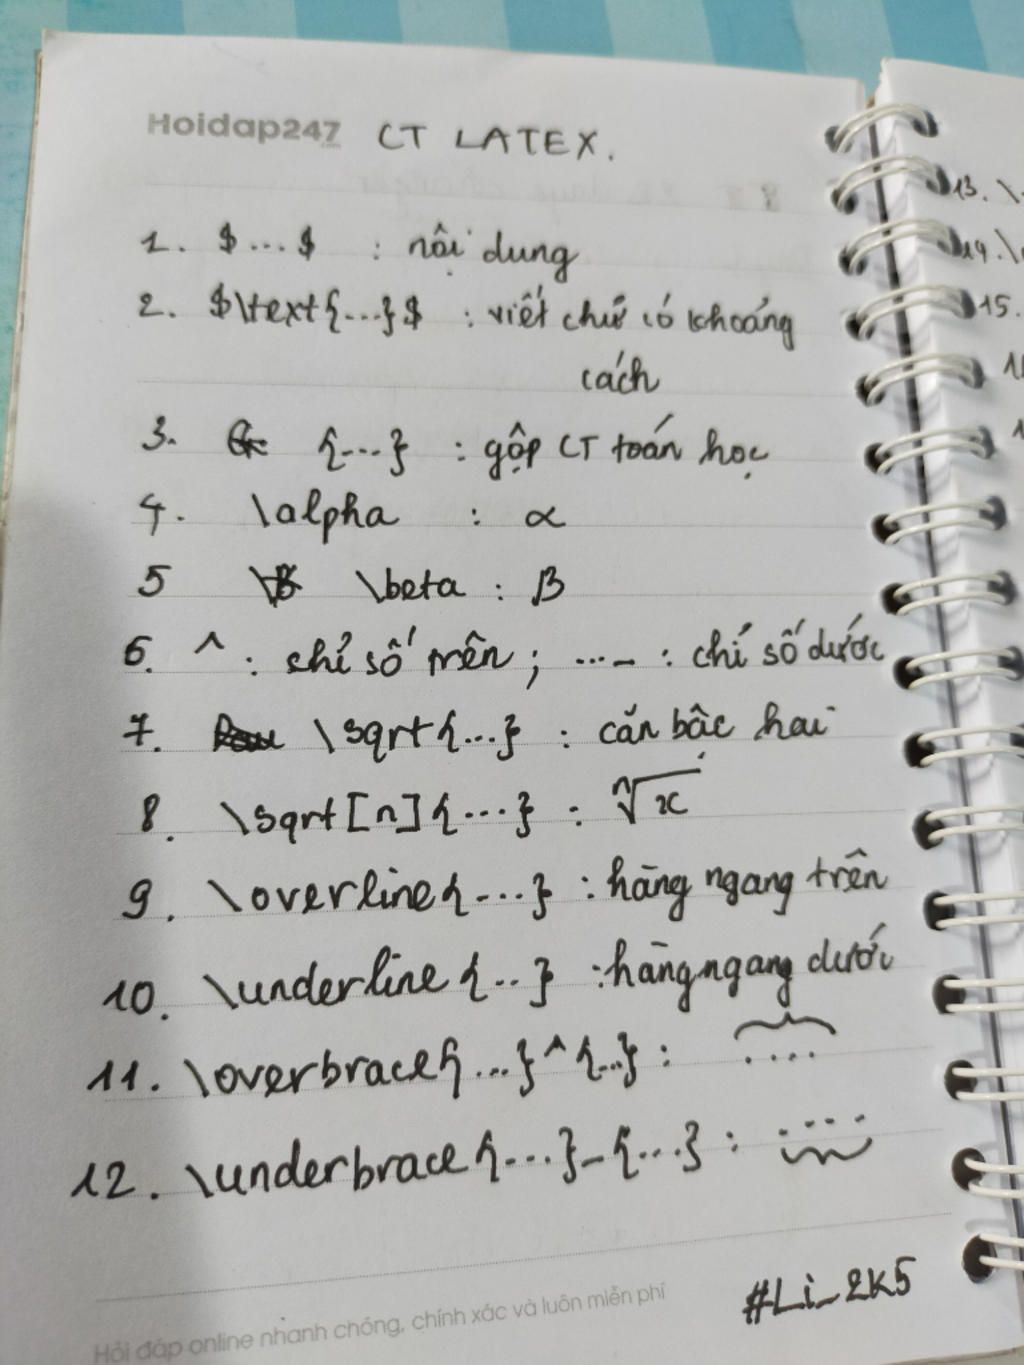 Hoidap247 CT LATEX.
13. \
1. $...$ : nội dung
14. \
2. $\text{...}$ : viết chữ có khoảng
15.
cách
3. {...} : gộp CT toán học
4. \alpha : α
5 \beta : β
6. ^ : chỉ số trên ; ..._ : chỉ số dưới
7. \sqrt{...} : căn bậc hai
8. \sqrt[n]{...} : ⁿ√x
9. \overline{...} : hàng ngang trên
10. \underline{..} : hàng ngang dưới
11. \overbrace{...}^{...} : ....
12. \underbrace{...}_{...} : ....
#Li_2K5
Hỏi đáp online nhanh chóng, chính xác và luôn miễn phí